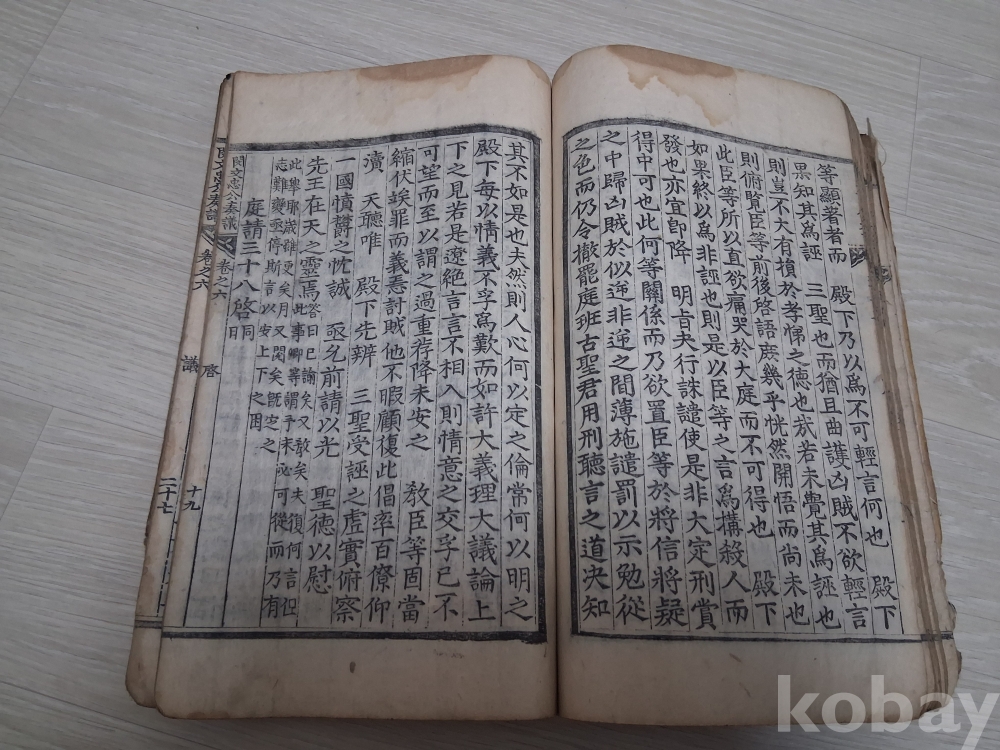 等顯著者而 殿下乃以爲不可輕言何也 殿下
果知其爲誣 三聖也而猶且曲護凶賊不欲輕言
則豈不大有損於孝悌之德也哉若未覺其爲誣也
則俯覽臣等前後啓語庶幾乎恍然開悟而尚未也
此臣等所以直欲痛哭於大庭而不可得也 殿下
如果終以爲非誣也則是以臣等之言爲搆殺人而
發也亦宜卽降 明旨夬行誅譴使是非大定刑賞
得中可也此何等關係而乃欲置臣等於將信將疑
之中歸凶賊於似逆非逆之間薄施譴罰以示勉從
之色而仍令撤罷庭班古聖君用刑聽言之道決知
其不如是也夫然則人心何以定之倫常何以明之
殿下每以情義不孚爲歎而如許大義理大議論上
下之見若是遼絶言言不相入則情意之交孚已不
可望而至以謂之過重荐降未安之 敎臣等固當
縮伏俟罪而義急討賊他不暇顧復此倡率百僚仰
瀆 天聽唯 殿下先辨 三聖受誣之虛實俯察
一國憤鬱之忱誠 亟允前請以光 聖德以慰
先王在天之靈焉 答曰已諭矣又敎矣夫復何言但
此事卿等謂乎未必可從而乃有
此擧耶歲雖更矣月又閱矣旣定之
志難變亟停斯言以安上下之困
庭請三十八啓 同日
閔文忠公奏議 卷之六
卷之六
啓
議
十九
二十七
kobay